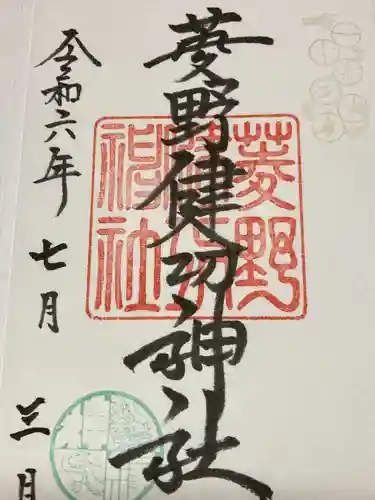 菱野健功神社
令和六年
七月
三日
菱野
健功
神社